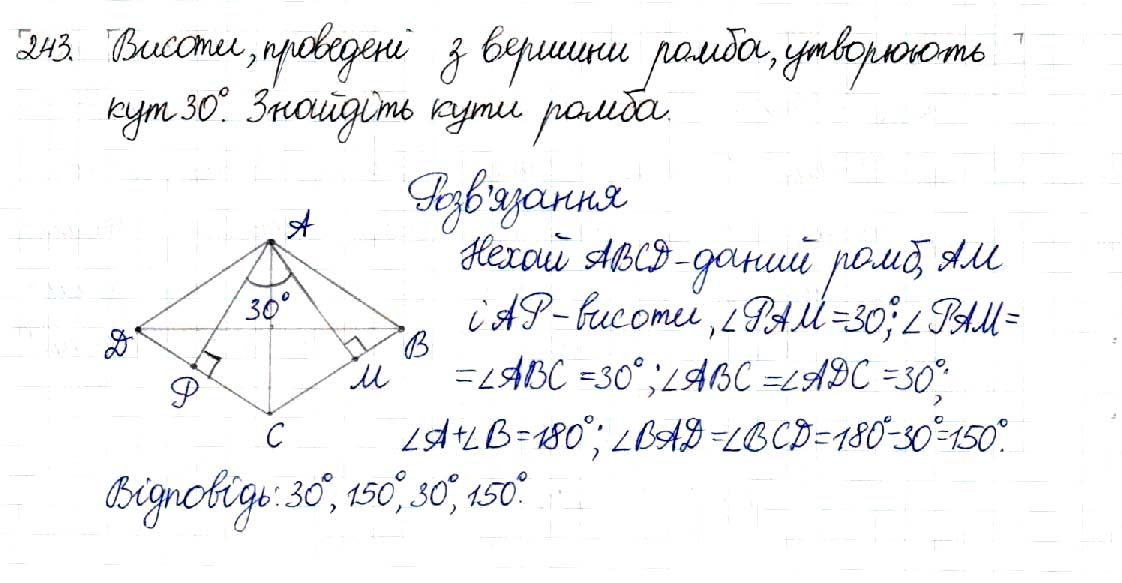 243. Висоти, проведені з вершини ромба, утворюють
кут 30°. Знайдіть кути ромба.
Розв'язання
Нехай ABCD - даний ромб, AM
і AP - висоти, ∠PAM = 30°; ∠PAM =
= ∠ABC = 30°; ∠ABC = ∠ADC = 30°;
∠A + ∠B = 180°; ∠BAD = ∠BCD = 180° - 30° = 150°.
Відповідь: 30°, 150°, 30°, 150°.
A
30°
D
B
P
M
C